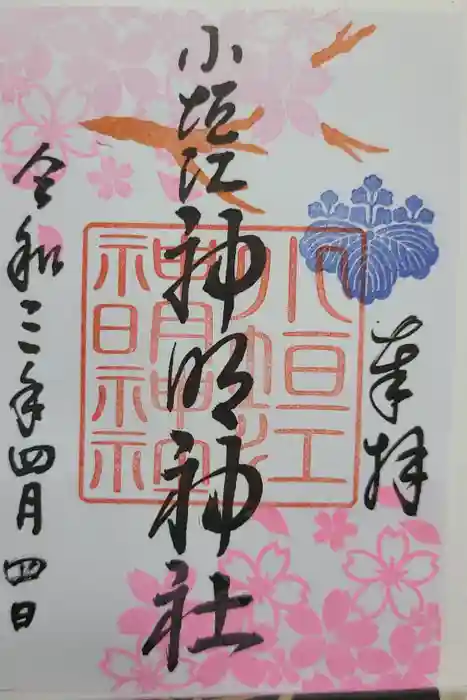 奉拝
小垣江神明神社
令和三年四月四日
小垣江
神明神社